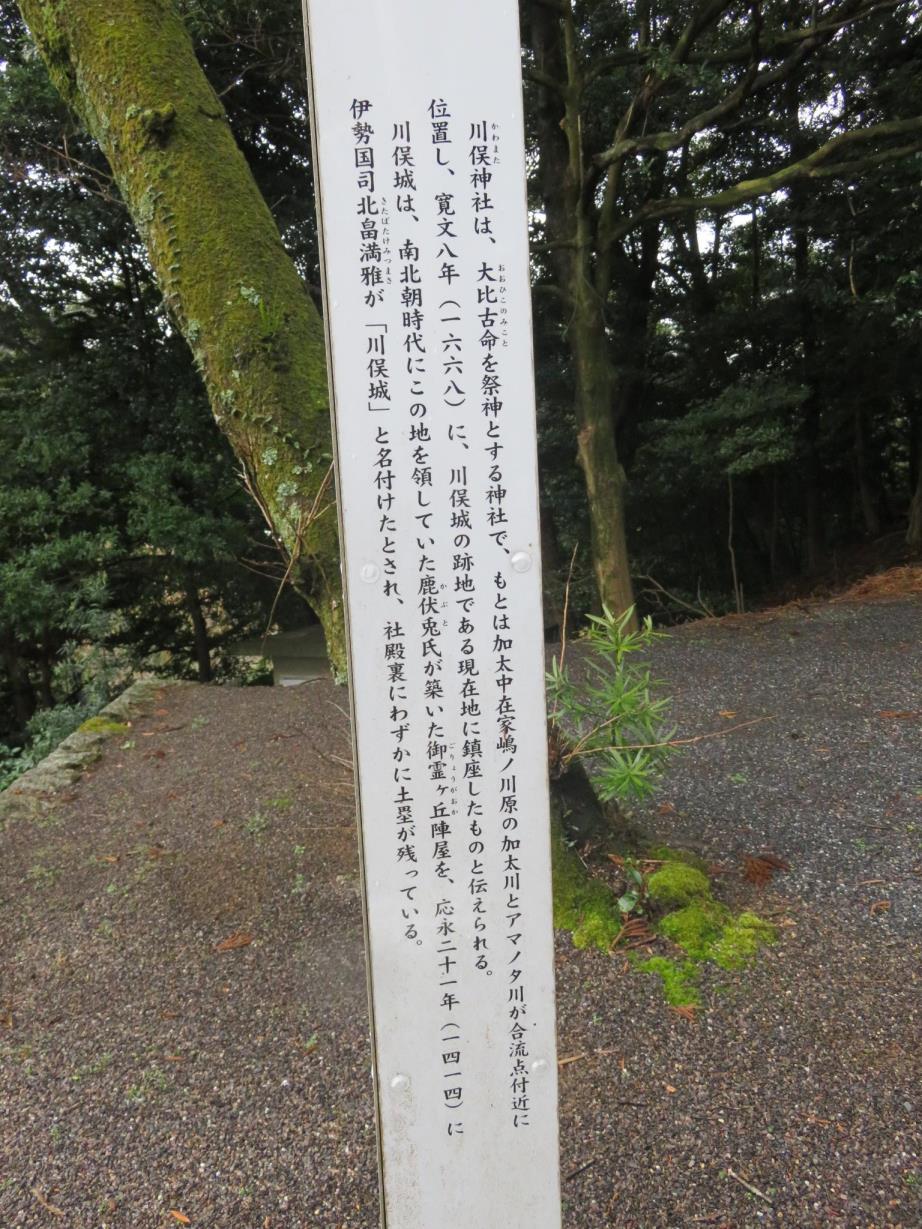 川俣神社は、大比古命を祭神とする神社で、もとは加太中在家嶋ノ川原の加太川とアマノタ川が合流点付近に
位置し、寛文八年（一六六八）に、川俣城の跡地である現在地に鎮座したものと伝えられる。
川俣城は、南北朝時代にこの地を領していた鹿伏兎氏が築いた御霊ヶ丘陣屋を、応永二十一年（一四一四）に
伊勢国司北畠満雅が「川俣城」と名付けたとされ、社殿裏にわずかに土塁が残っている。
かわまた
おおひこのみこと
かぶと
ごりょうがおか
きたばたけみつまさ